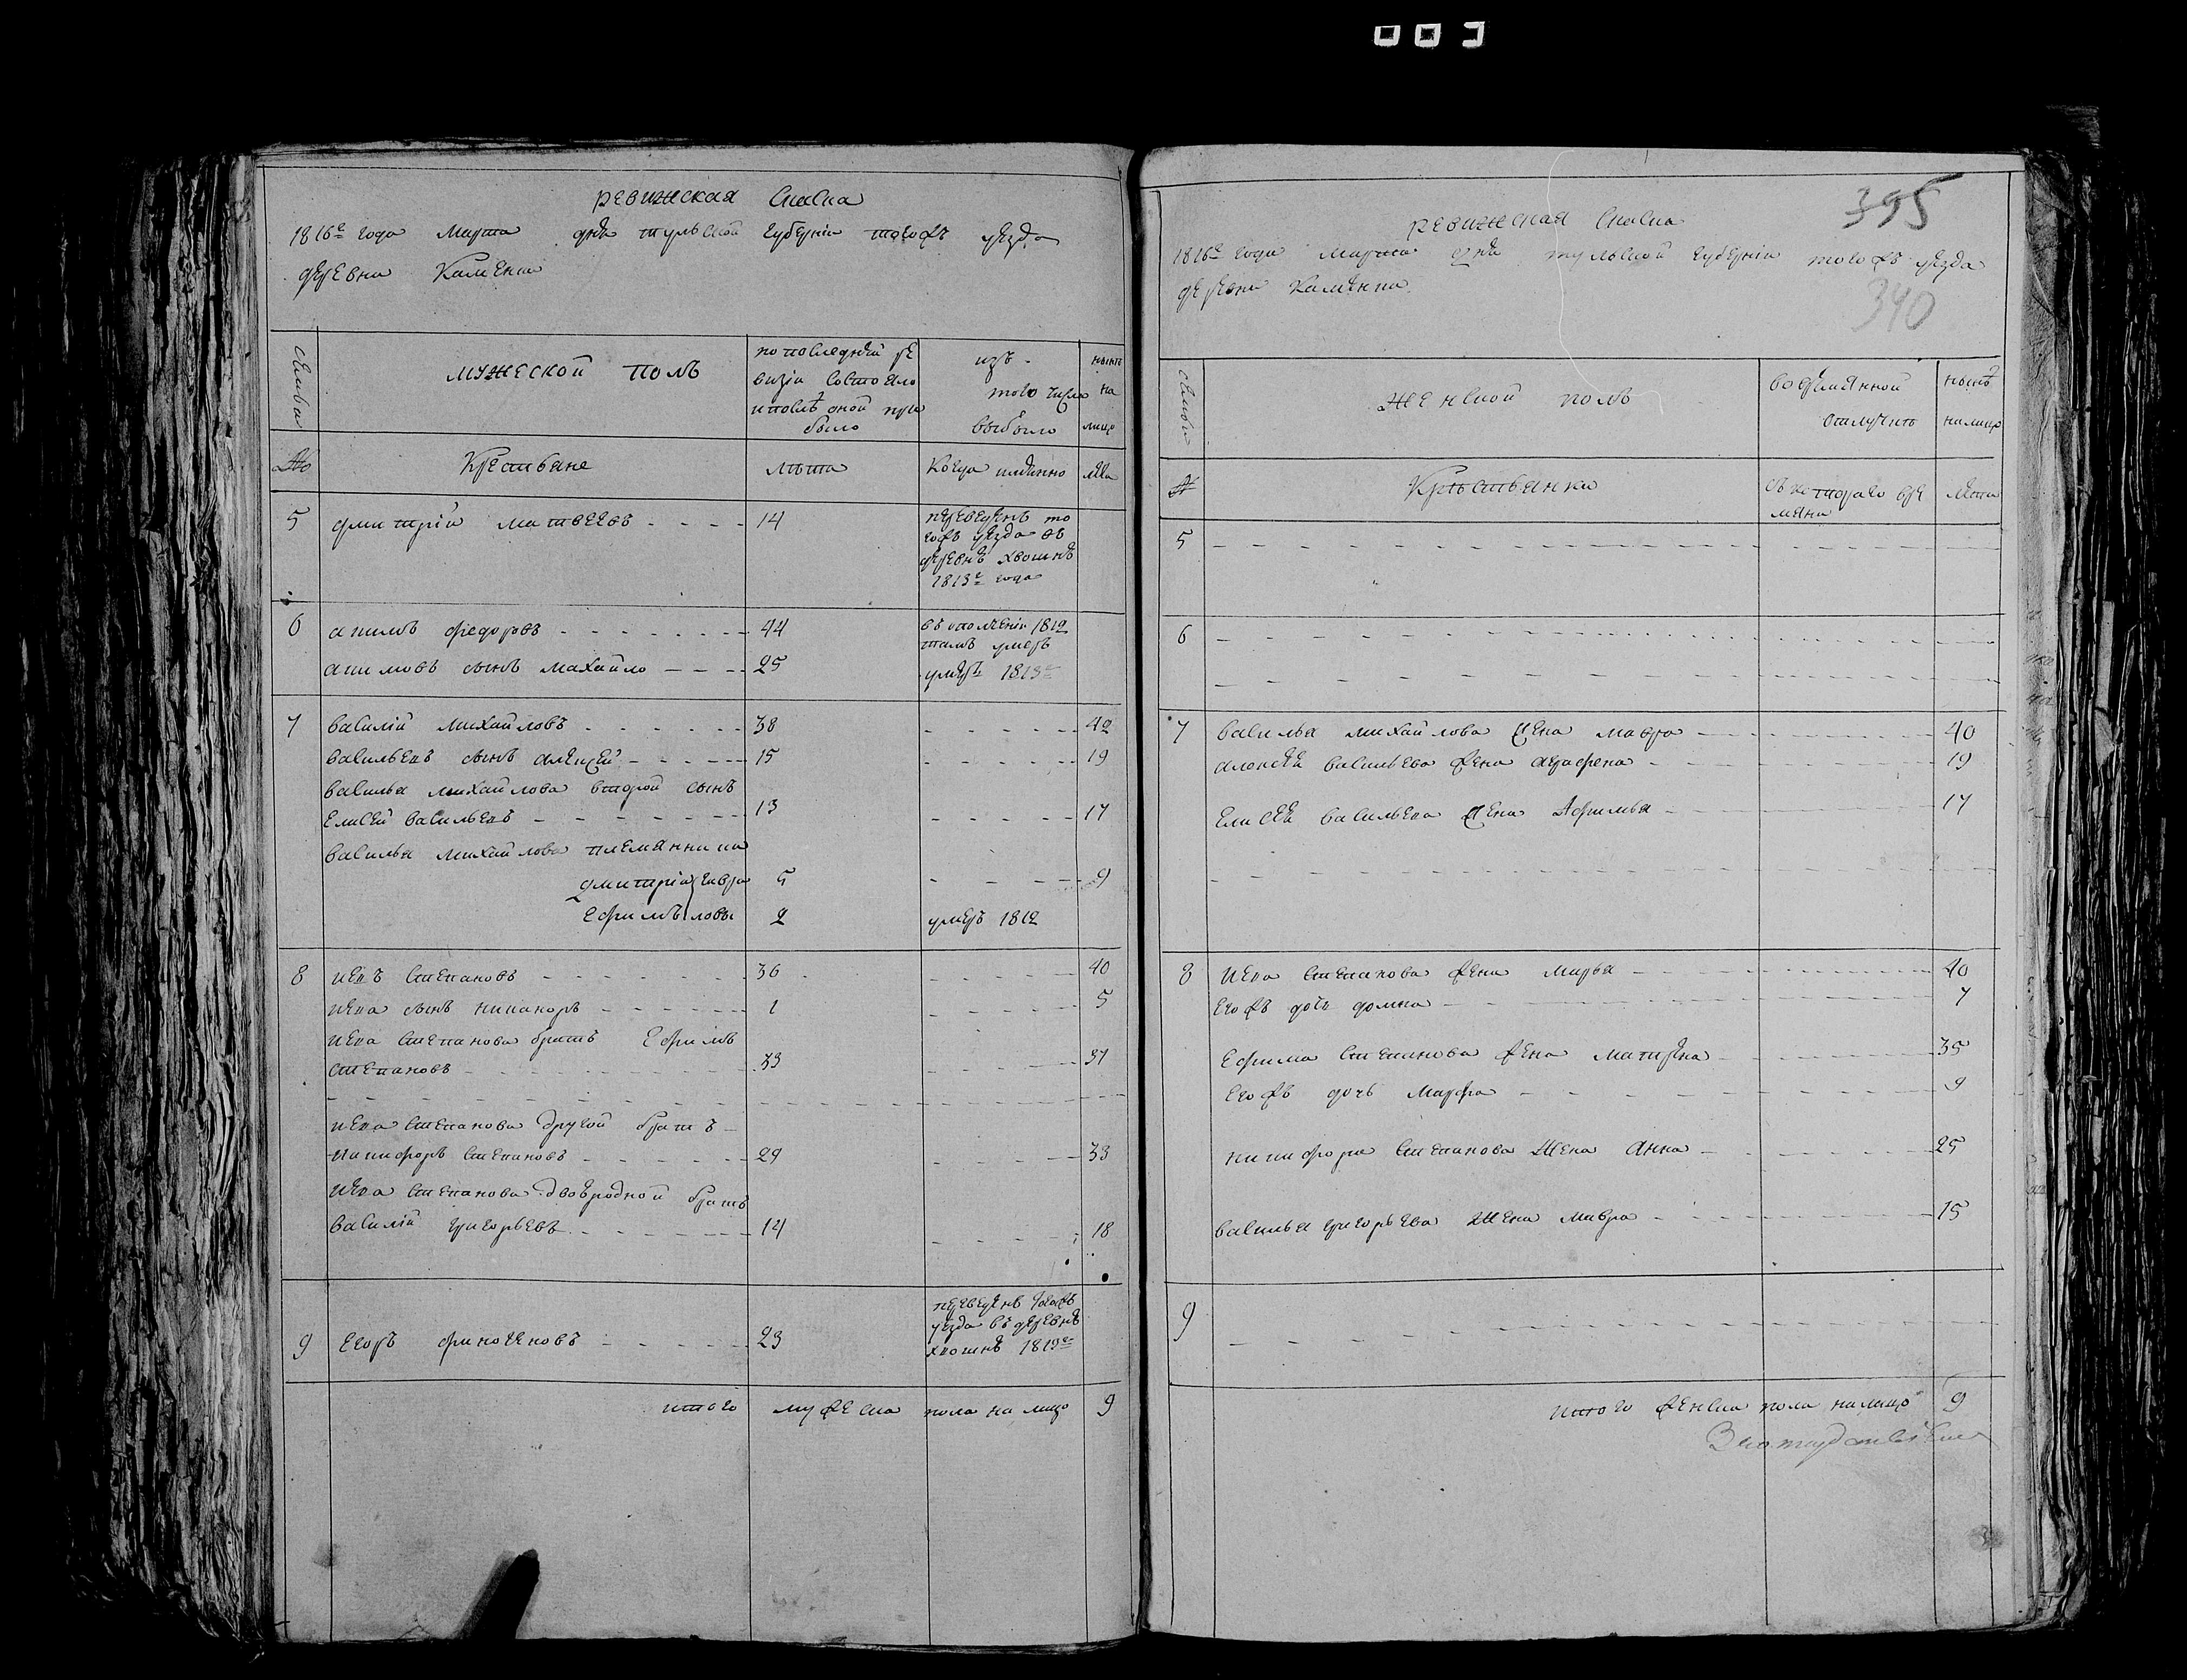 003
ревижская скаска
1816го года марта дня тульской губерніи тогожъ уезда
деревни Каменки
семьи
мужеской полъ
по последней ре
визіи состояло
и после оной при
было
изъ
того числа
выбыло
ныне
на
лицо
№
Крестьяне
лета
Когда именно
лета
5
дмитрій матвеевъ
14
переведенъ то
гожъ уезда въ
деревне хвошне
1813го года
6
акимъ федоровъ
44
въ ополченіи 1812
тамъ умеръ
акимовъ сынъ махайло
25
умеръ 1813го
7
василій михайловъ
38
42
васильевъ сынъ алексей
15
19
василья михайлова второй сынъ
елисей васильевъ
13
17
василья михайлова племянники
дмитрій гаври
5
9
ефимъ ловы
2
умеръ 1812
8
иевъ степановъ
36
40
иева сынъ никаноръ
1
5
иева степанова братъ ефимъ
степановъ
33
37
иева степанова другой братъ
никифоръ степановъ
29
33
иева степанова двоюродной братъ
василій григорьевъ
14
18
9
егоръ финогеновъ
23
переведенъ тогожъ
уезда въ деревне
хвошне 1813го
итого мужеска пола на лицо 9
395
ревижская скаска
1816го года марта дня тульской губерніи тогожъ уезда
деревни каменки
340
семьи
женской полъ
во временной
отлучке
ныне
налицо
№
Крестьянки
съ котораго вре
мени
лета
5
6
7
василья михайлова жена мавра
40
алексея васильева жена аграфена
19
елисея васильева жена Афимья
17
8
иева степанова жена марья
40
егожъ дочь домна
7
ефима степанова жена матрена
35
егожъ дочь марфа
9
никифора степанова жена анна
25
василья григорьева жена мавра
15
9
итого женска пола налицо 9